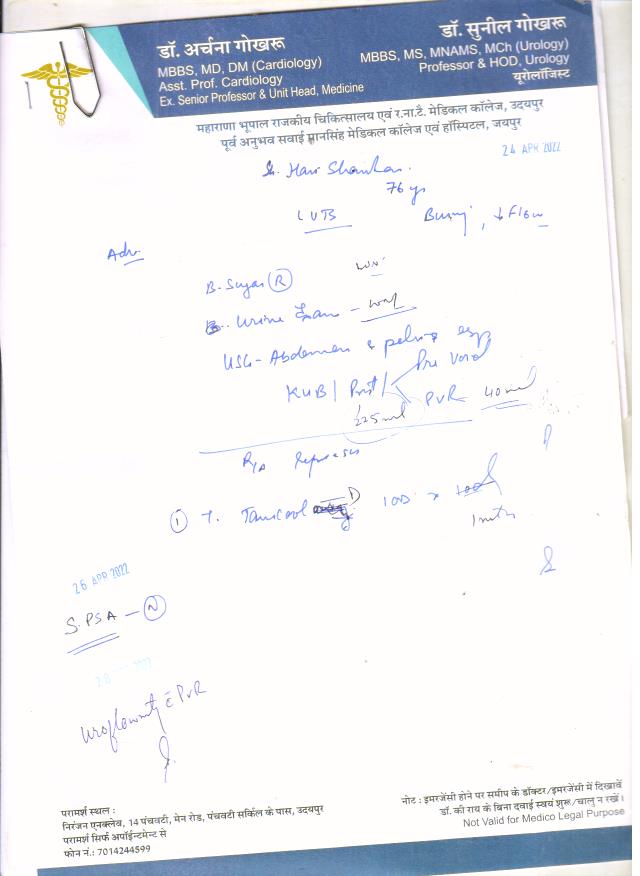 डॉ. अर्चना गोखरू
MBBS, MD, DM (Cardiology)
Asst. Prof. Cardiology
Ex. Senior Professor & Unit Head, Medicine
डॉ. सुनील गोखरू
MBBS, MS, MNAMS, MCh (Urology)
Professor & HOD, Urology
यूरोलॉजिस्ट
महाराणा भूपाल राजकीय चिकित्सालय एवं र.ना.टै. मेडिकल कॉलेज, उदयपुर
पूर्व अनुभव सवाई मानसिंह मेडिकल कॉलेज एवं हॉस्पिटल, जयपुर
24 APR 2022
Hari Shankar
76 yr
LUTS Burning, ↓ Flow
Adv.
B. Sugar (R)
Urine Exam - WNL
USG - Abdomen & pelvis esp
KUB / Prost / Pre Void
225 ml PVR 40 ml
① T. 1OD x
1 mth
26 APR 2022
S. PSA - (N)
Uroflowmetry c̄ PVR
परामर्श स्थल :
निरंजन एनक्लेव, 14 पंचवटी, मेन रोड, पंचवटी सर्किल के पास, उदयपुर
परामर्श सिर्फ अपॉईन्टमेन्ट से
फोन नं.: 7014244599
नोट : इमरजेंसी होने पर समीप के डॉक्टर/इमरजेंसी में दिखावें
डॉ. की राय के बिना दवाई स्वयं शुरू/चालु न रखें।
Not Valid for Medico Legal Purpose